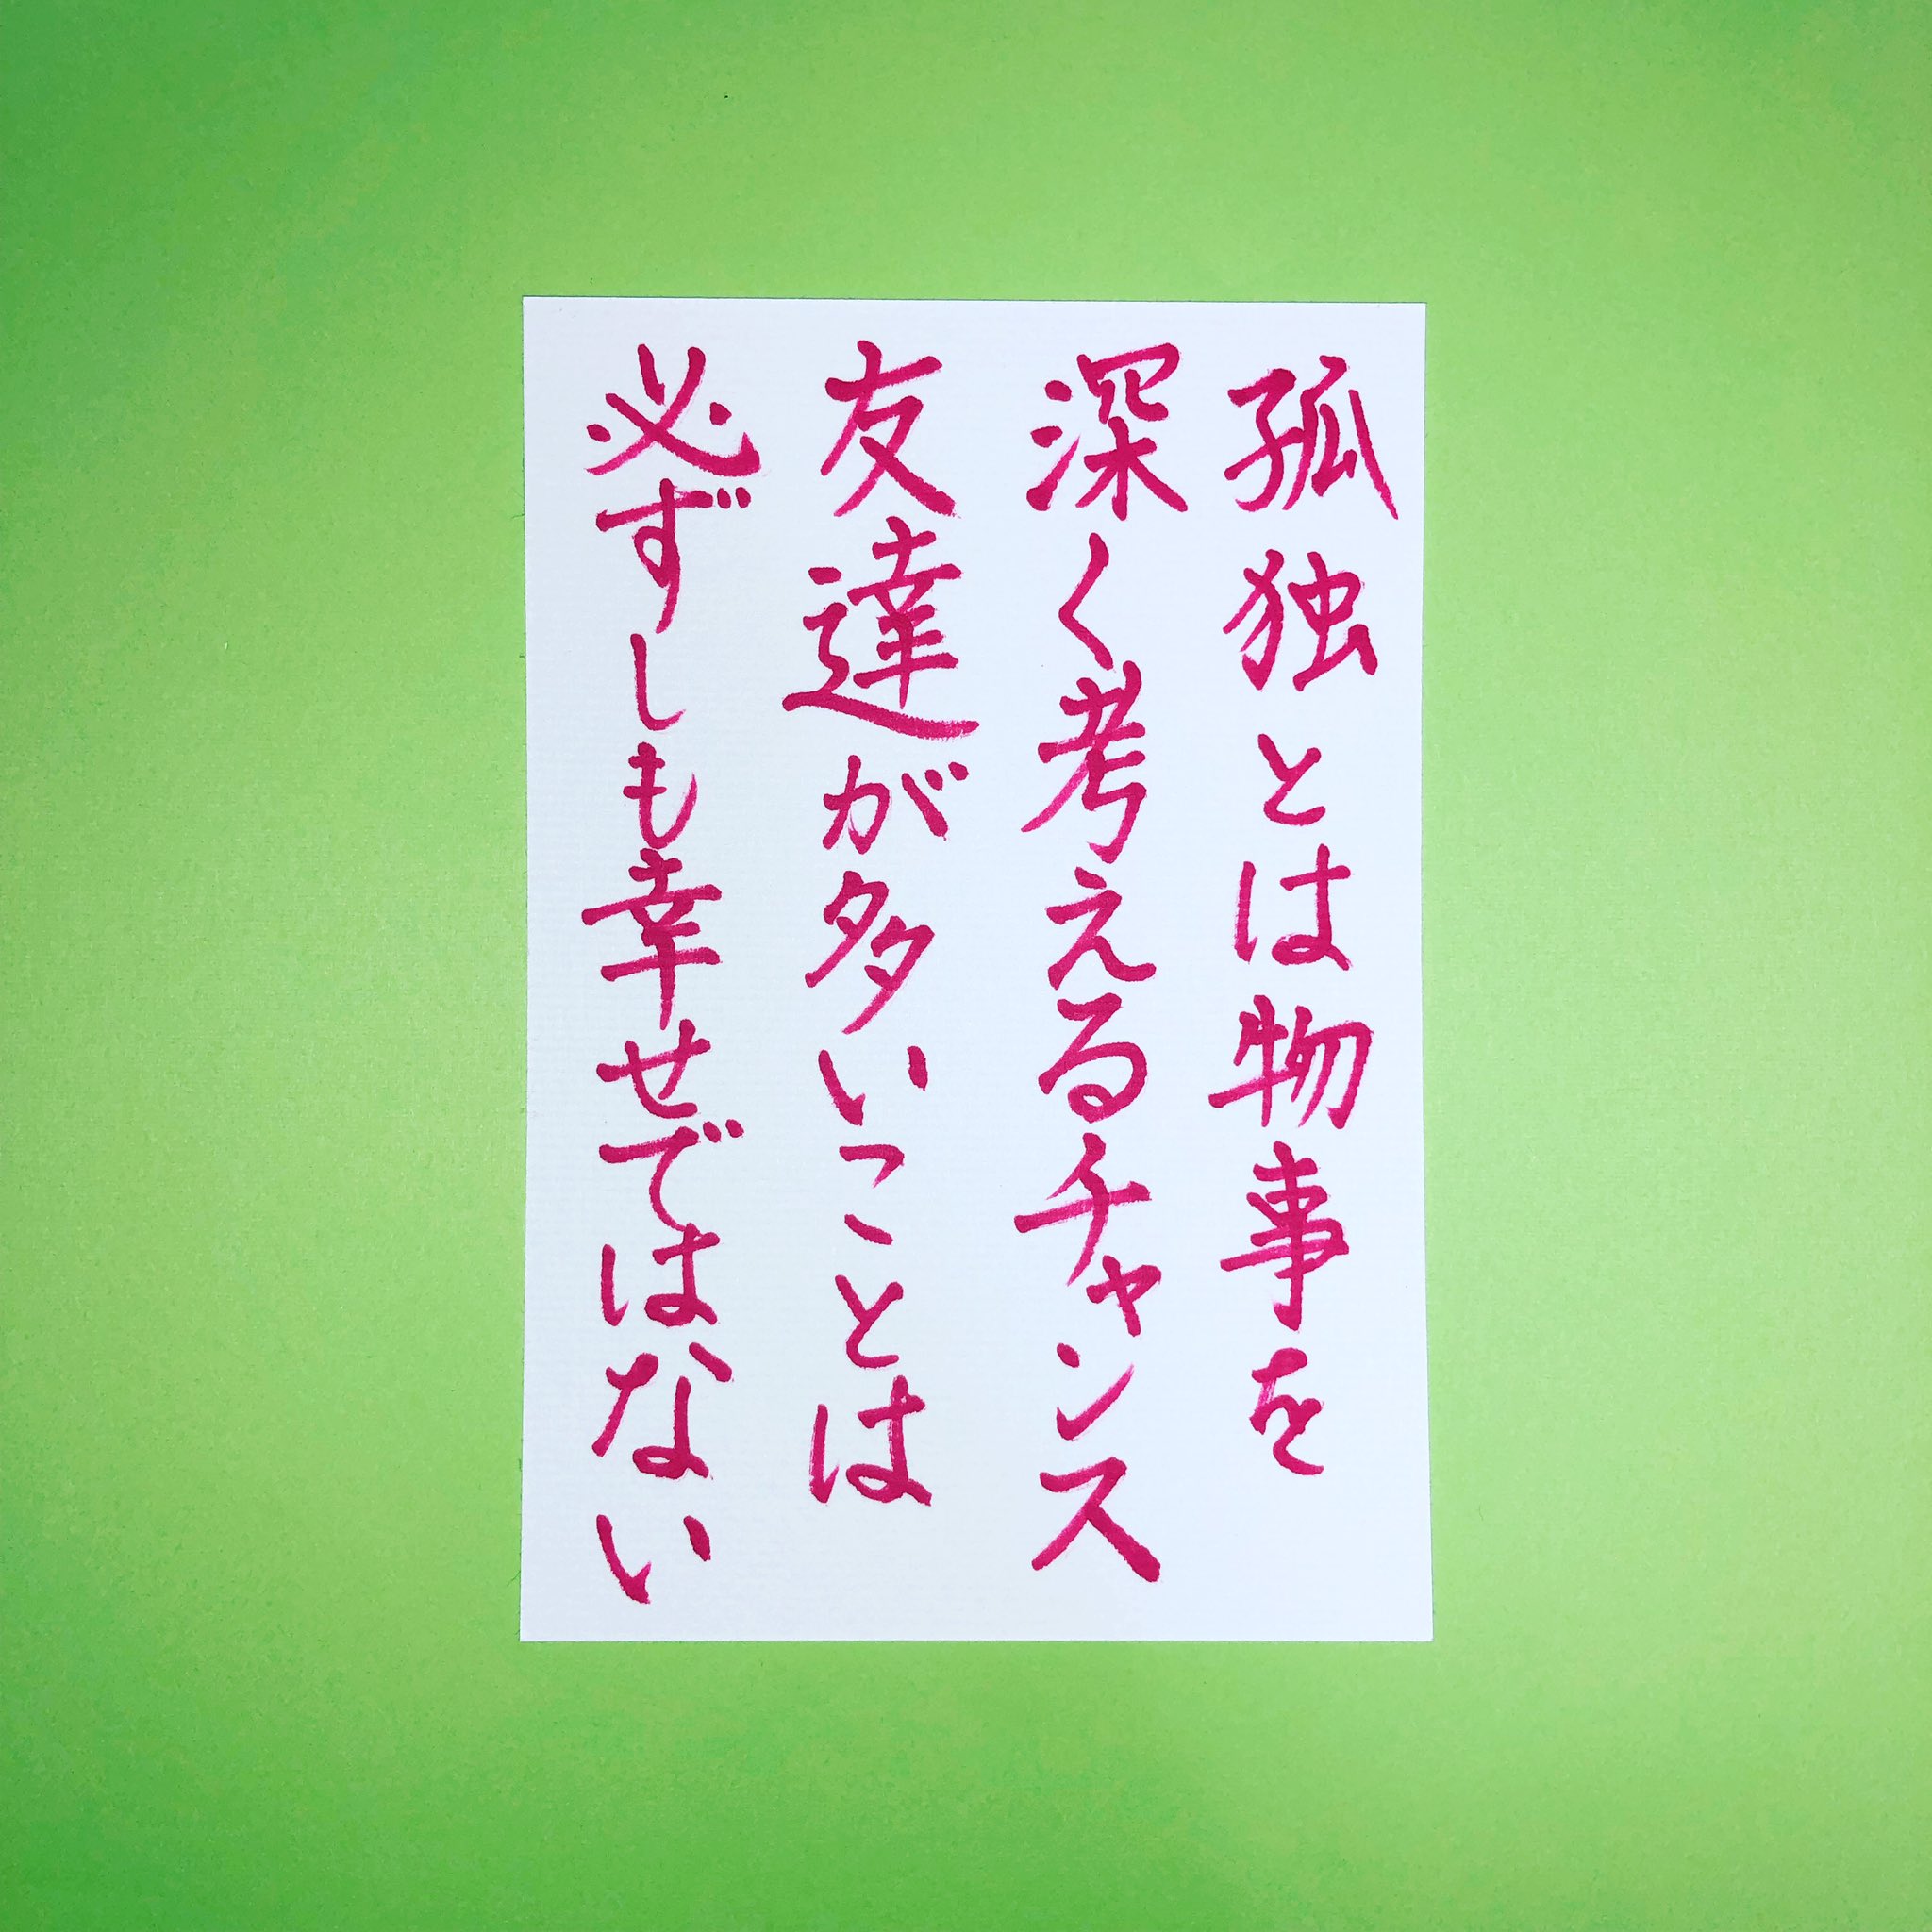 孤独とは物事を
深く考えるチャンス
友達が多いことは
必ずしも幸せではない